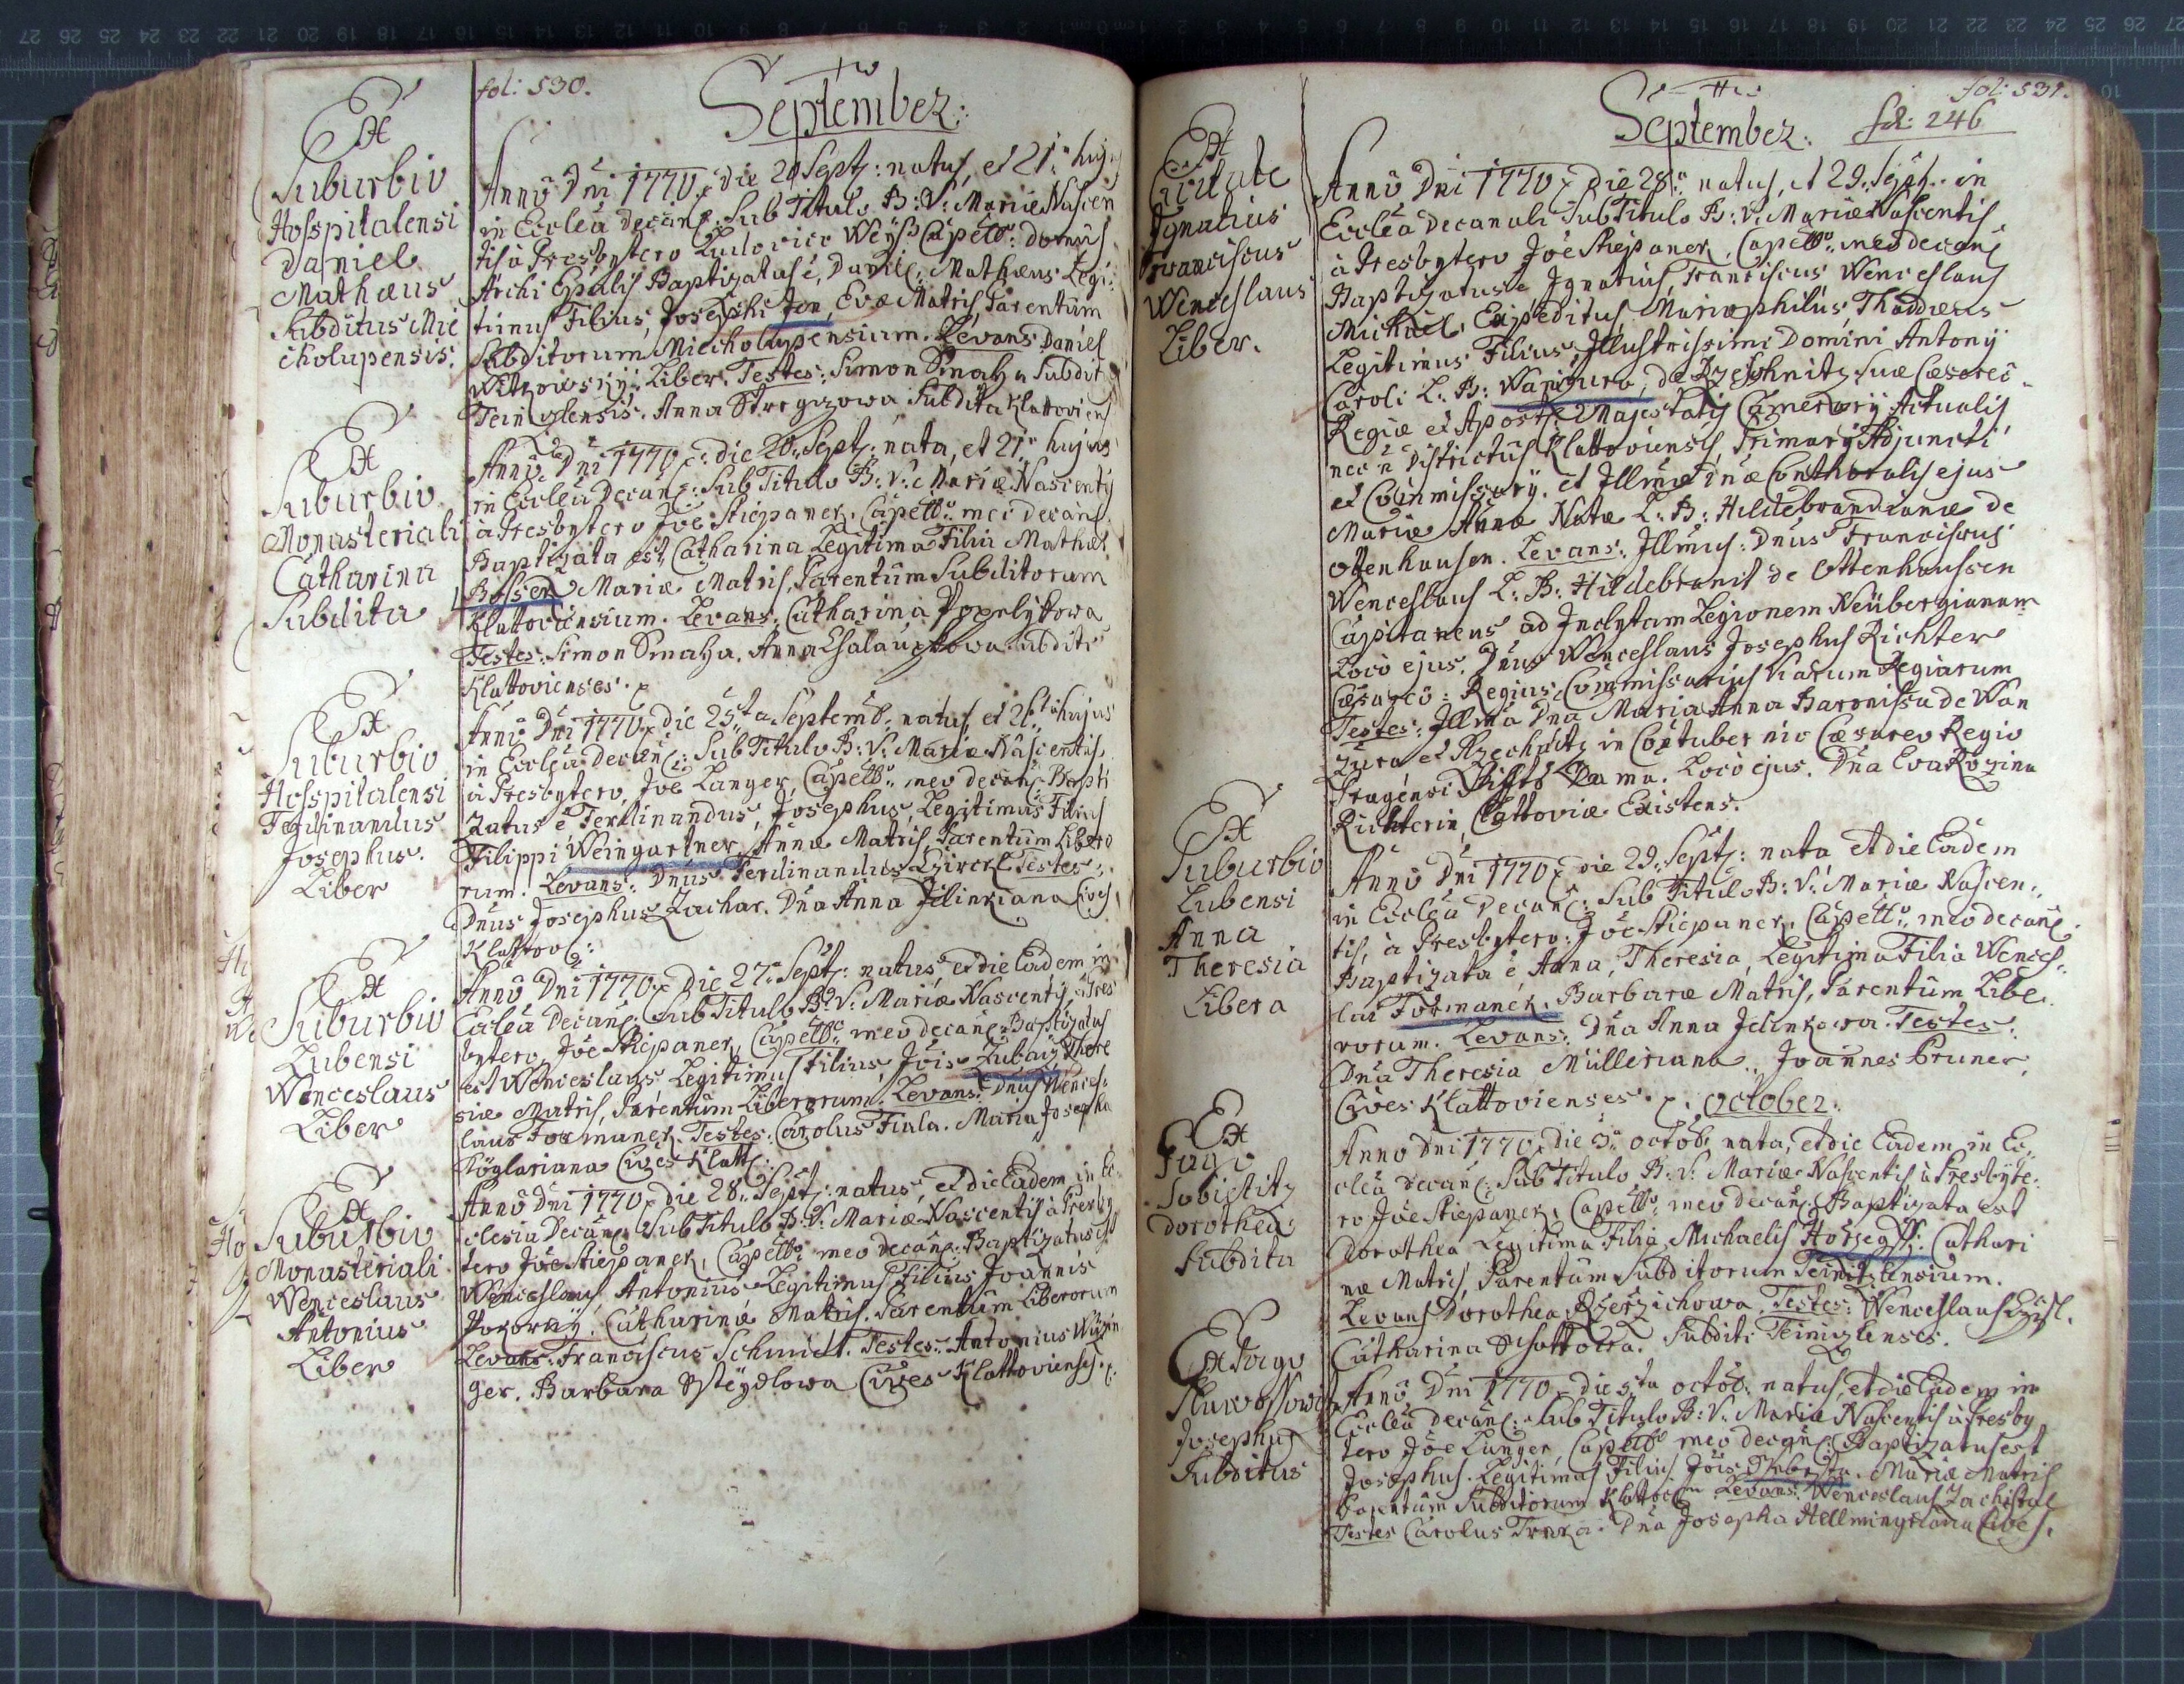 fol: 530.
September:
Ex
Suburbio
Hosspitalensi
Daniel
Mathæus
Subditus Mie
cholupensis.
Anno Dni 1770 die 20 Sept: natus, et 21 hujus
in Ecclea Decanl: Sub Titulo B: V: Mariæ Nascen
tis à Presbytero Ludovico Weÿss Capello: domus
Archi Epalis Baptizatus e, Daniel, Mathæus Legi:
timus Filius, Josephi Jon, Evæ Matris, Parentum
Subditorum Miecholupensium. Levans Daniel
Witkowskÿ Liber. Testes: Simon Smaha Subdit
Anna Subdita Klattoviens
Ex
Suburbio
Monasteriali
Catharina
Subdita
Anno Dni 1770 die 20 Sept: nata, et 21 hujus
in Ecclea Decanl: Sub Titulo B: V: Mariæ Nascentis
à Presbytero Joe Stiepanek, Capello mei decanl
Baptizata est Catharina Legitima Filia Mathæi
Mariæ Matris, Parentum Subditorum
Klattoviensium. Levans: Catharina
Testes: Simon Smaha, Anna Subditi
Klattovienses.
Ex
Suburbio
Hosspitalensi
Ferdinandus
Josephus.
Liber
Anno Dni 1770 die 25ta Septemb: natus et 26ta hujus
in Ecclea decanl: Sub Titulo B: V: Mariæ Nascentis
à Presbytero, Joe Langer, Capello: meo decanl: Bapti
zatus e Ferdinandus, Josephus, Legitimus Filius
Filippi Weingartner, Annæ Matris, Parentum Libero
rum. Levans: Dnus Ferdinandus Testes:
Dnus Josephus Zachar. Dna Anna Jelinkiana Cives
Klattov:
Ex
Suburbio
Lubensi
Wenceslaus
Liber
Anno Dni 1770 Die 27 Sept: natus et die Eadem in
Ecclea Decanl: Sub Titulo B: V: Mariæ Nascentis, à Pres
bytero Joe Stiepanek, Capello: meo decanl: Baptizatus
est Wenceslaus Legitimus Filius Jois There
siæ Matris, Parentum Liberorum. Levans: Dnus Wences:
laus Formanek. Testes: Carolus Fiala. Maria Josepha
Cives Klatt:
Ex
Suburbio
Monasteriali
Wenceslaus
Antonius
Liber
Anno Dni 1770 die 28 Sept: natus, et die Eadem in Ec
clesia Decanl: Sub Titulo B: V: Mariæ Nascentis à Presby
tero Joe Stiepanek, Capello: meo decanl: Baptizatus est
Wenceslaus Antonius Legitimus Filius Joannis
Pokornÿ, Catharinæ Matris, Parentum Liberorum
Levans: Franciscus Schmidt. Testes: Antonius
ger. Barbara Cives Klattovienses.
September:
fol: 531.
fol: 246
Ex
Civitate
Ignatius
Franciscus
Wenceslaus
Liber.
Anno Dni 1770 Die 28 natus, et 29 Sept: in
Ecclea Decanali Sub Titulo B: V: Mariæ Nascentis
à Presbytero Joe Stiepanek, Capello: meo decanl
Baptizatus e Ignatius, Franciscus Wenceslaus
Michael, Expeditus Mariophilus, Thaddæus
Legitimus Filius, Illustrissimi Domini Antonÿ
Caroli L: B: Wanczura, de Rzehnitz, Suæ Cæsareæ
Regiæ et Apost: Majestatis Camerarÿ Actualis
nec n Districtus Klattoviensis, Primarÿ Adjuncti
et Commissarÿ, et Illmæ Dnæ Conthoralis ejus
Mariæ Annæ Natæ L: B: Hildebrandianæ de
Ottenhausen. Levans: Illmus: Dnus Franciscus
Wenceslaus L: B: Hildebrandt de Ottenhaussen
Capitaneus ad Inclytam Legionem Neübergianam
Loco ejus. Dnus Wenceslaus Josephus Richter
Cæsareo: Regius Commissarius Viarum Regiarum
Testes: Illma Dna Maria Anna Baronissa de Wan
zura et Rzechnitz in Contubernio Cæsareo Regio
Pragensi Dama. Loco ejus. Dna Eva Rozina
Richterin, Clattoviæ Existens.
Ex
Suburbio
Lubensi
Anna
Theresia
Libera
Anno Dni 1770 die 29 Sept: nata et die Eadem
in Ecclea Decanl: Sub Titulo B: V: Mariæ Nascen:
tis, à Presbytero: Joe Stiepanek, Capello: meo decanl
Baptizata e, Anna, Theresia, Legitima Filia Wences:
lai Formanek, Barbaræ Matris, Parentum Libe:
rorum. Levans: Dna Anna Jelinkowa. Testes:
Dna Theresia Mülleriana. Joannes Pruner,
Cives Klattovienses.
October:
Ex
Pago
Sobietitz
Dorothea
Subdita
Anno Dni 1770 die 3 Octob: nata, et die Eadem in Ec:
clea Decanl: Sub Titulo B: V: Mariæ Nascentis à Presbyte:
ro Joe Stiepanek, Capello: meo decanl: Baptizata est
Dorothea Legitima Filia Michaelis Cathari
næ Matris, Parentum Subditorum Teinitzlensium.
Levans Dorothea Testes: Wenceslaus
Catharina Subditi Teinizlenses.
Ex Pago
Josephus
Subditus
Anno Dni 1770 die 5ta Octob: natus, et die Eadem in
Ecclea Decanl: Sub Titulo B: V: Mariæ Nascentis à Presby
tero Joe Langer, Capello meo decanl: Baptizatus est
Josephus. Legitimus Filius Jois Mariæ Matris
Parentum Subditorum Levans: Wenceslaus
Testes Carolus Trnka. Dna Josepha Cives.